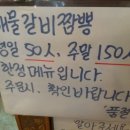 해물갈비짬뽕
평일 50人, 주말 150人
한정메뉴입니다.
주문시, 확인바랍니다
품절